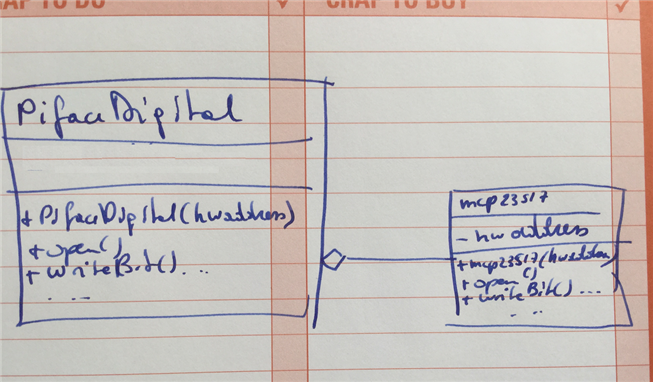 CRAP TO DO ✓ CRAP TO BUY ✓
PifaceDigital
+ PifaceDigital(hwaddress)
+ open()
+ writeBit() ...
...
mcp23s17
- hw address
+ mcp23s17(hwaddress)
+ open()
+ writeBit() ...
...